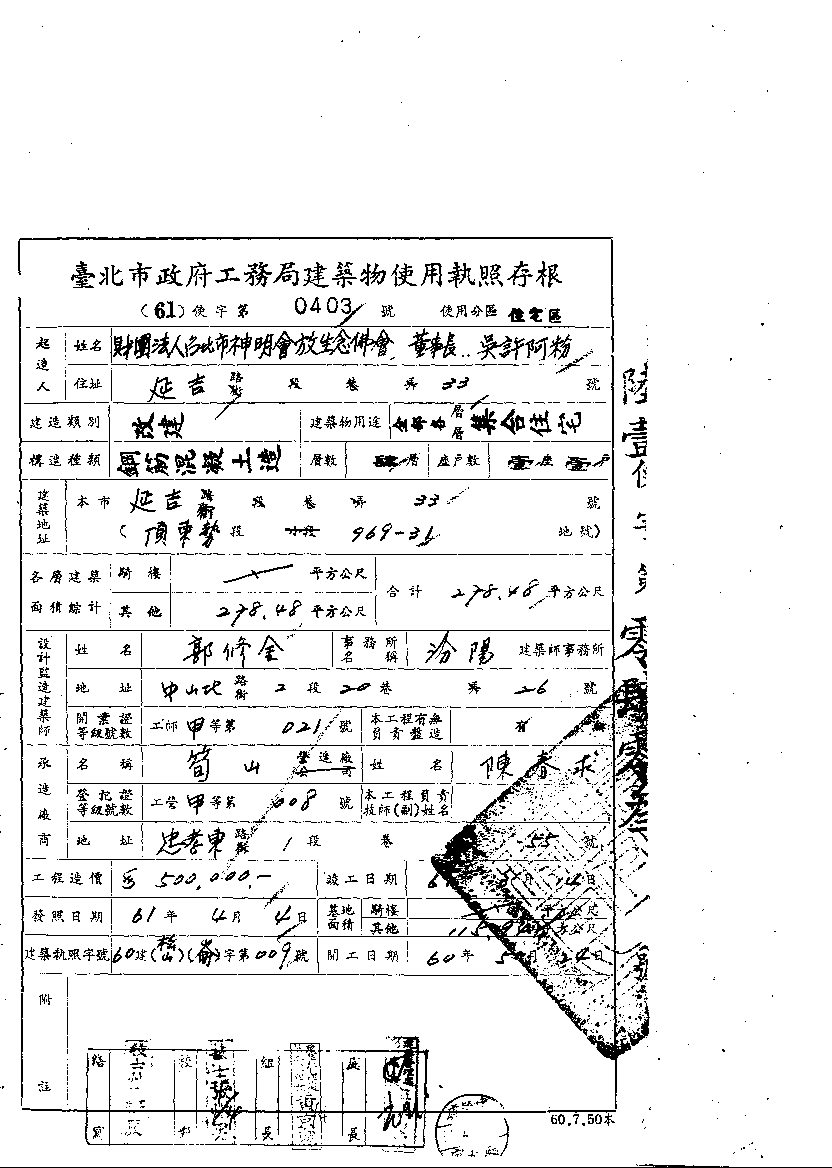 臺北市政府工務局建築物使用執照存根
(61)使字第 0403 號 使用分區 住宅區
起造人 姓名 財團法人台北市神明會放生念佛會 董事長..吳許阿粉
住址 延吉 路街 段 巷 弄 33 號
建造類別 改建 建築物用途 全部各層層 集合住宅
構造種類 鋼筋混凝土造 層數 肆層 座戶數 壹座壹戶
建築地址 本市 延吉 路街 段 巷 弄 33 號
(頂東勢 段 小段 969-31 地號)
各層建築面積綜計 騎樓 平方公尺 合計 278.48 平方公尺
其他 278.48 平方公尺
設計監造建築師 姓名 郭修全 事務所名稱 汾陽 建築師事務所
地址 中山北 路街 2 段 20 巷 弄 26 號
開業證等級號數 工師 甲 等第 021 號 本工程有無負責監造 有
承造廠商 名稱 筍山 營造廠公司 姓名 陳春求
登記證等級號數 工營 甲 等第 008 號 本工程負責技師(副)姓名
地址 忠孝東 路街 1 段 巷 55 號
工程造價 500,000.- 竣工日期 月 14 日
發照日期 61 年 4 月 4 日 基地面積 騎樓 平方公尺
其他 平方公尺
建築執照字號 60 建(松山)(崙)字第 009 號 開工日期 60 年 5 月 24 日
附註
組長
股長
60.7.50本
陸壹使字第零肆零叁號